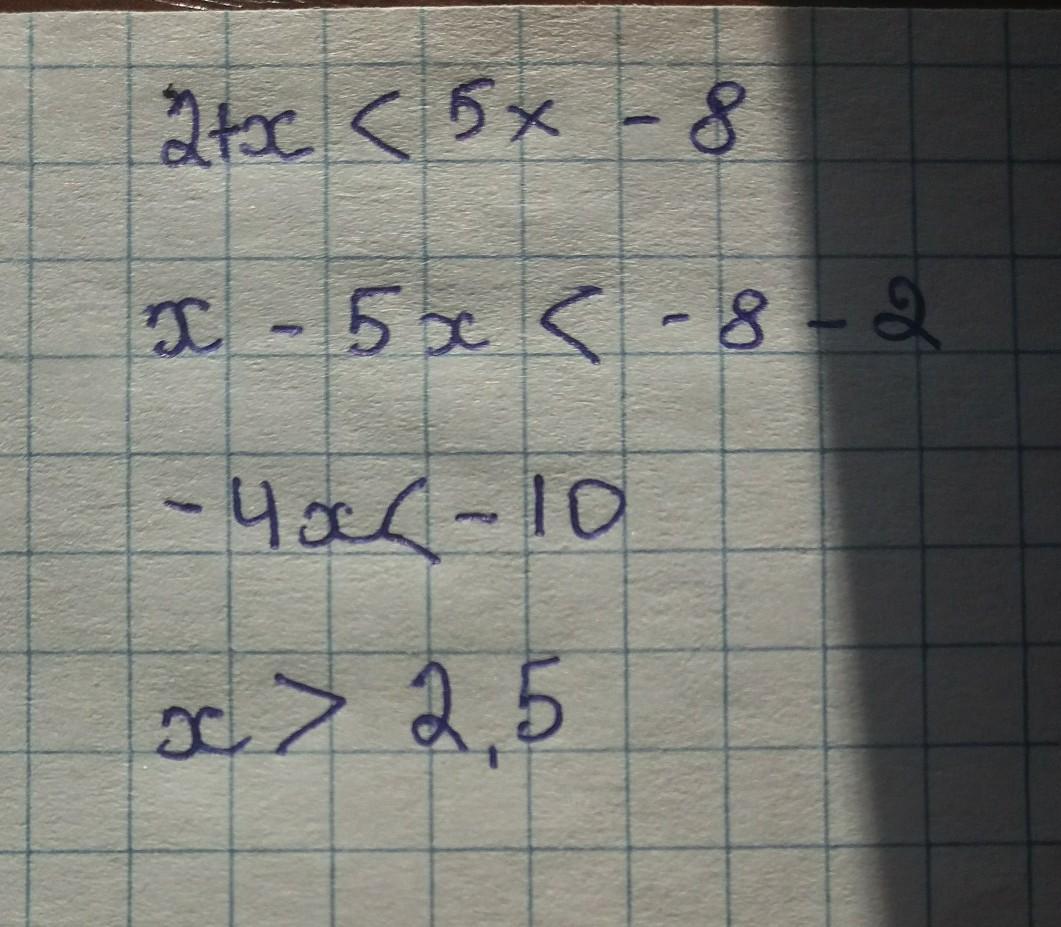 2+x < 5x - 8
x - 5x < - 8 - 2
- 4x < - 10
x > 2,5